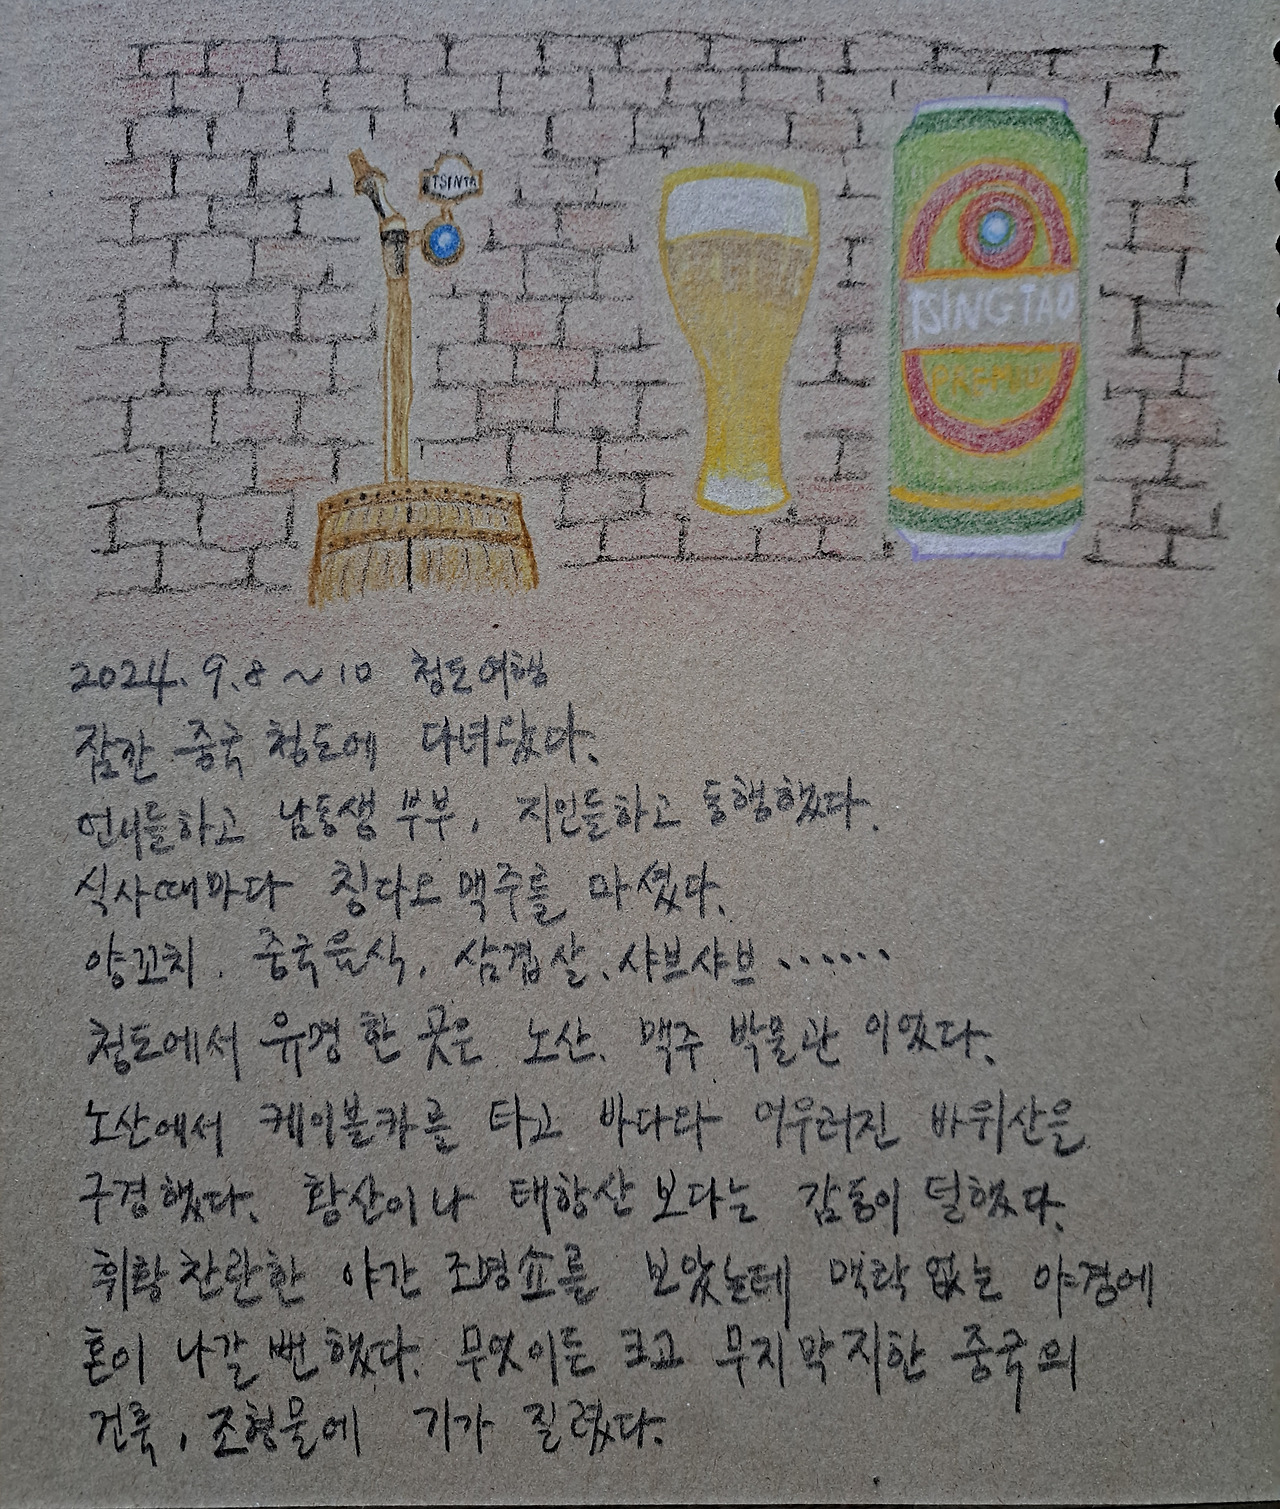 TSINTA
TSINGTAO
2024. 9. 8 ~ 10 청도여행
잠깐 중국 청도에 다녀왔다.
언니들하고 남동생 부부, 지인들하고 동행했다.
식사때마다 칭다오 맥주를 마셨다.
양꼬치, 중국음식, 삼겹살, 샤브샤브......
청도에서 유명한 곳은 노산, 맥주 박물관 이었다.
노산에서 케이블카를 타고 바다와 어우러진 바위산을
구경했다. 황산이나 태항산 보다는 감동이 덜했다.
휘황찬란한 야간 조명쇼를 보았는데 맥락 없는 야경에
혼이 나갈 뻔했다. 무엇이든 크고 무지막지한 중국의
건축, 조형물에 기가 질렸다.